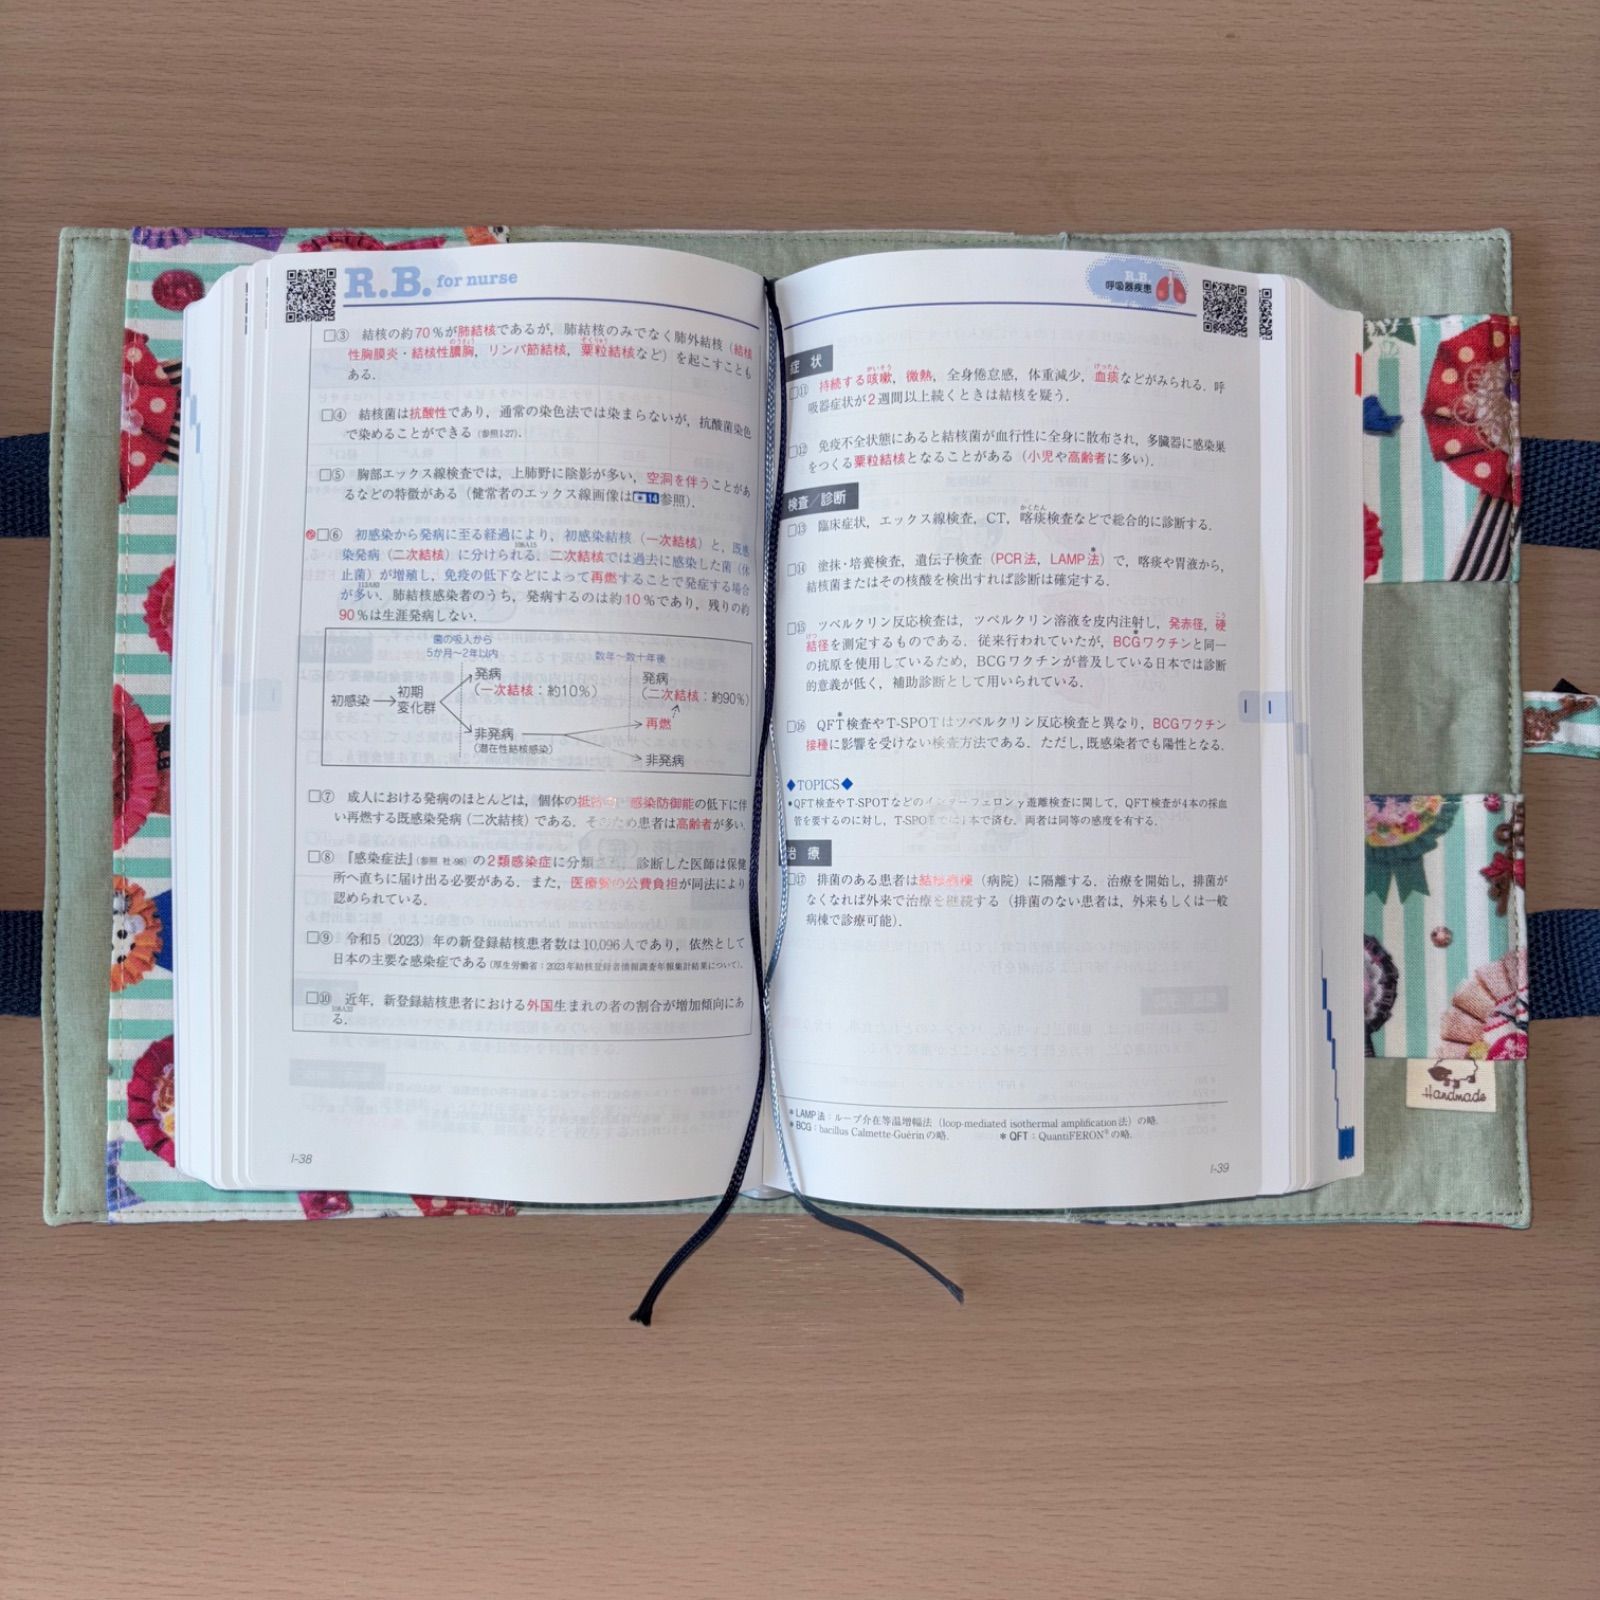 R.B. for nurse
□③ 結核の約70％が肺結核であるが，肺結核のみでなく肺外結核（結核
性胸膜炎・結核性膿胸，リンパ節結核，粟粒結核など）を起こすことも
ある．
□④ 結核菌は抗酸性であり，通常の染色法では染まらないが，抗酸菌染色
で染めることができる（参照I-27）．
□⑤ 胸部エックス線検査では，上肺野に陰影が多い，空洞を伴うことがあ
るなどの特徴がある（健常者のエックス線画像は14参照）．
□⑥ 初感染から発病に至る経過により，初感染結核（一次結核）と，既感
染発病（二次結核）に分けられる．二次結核では過去に感染した菌（休
止菌）が増殖し，免疫の低下などによって再燃することで発症する場合
が多い．肺結核感染者のうち，発病するのは約10％であり，残りの約
90％は生涯発病しない．
菌の吸入から
5か月〜2年以内
数年〜数十年後
初感染→初期
変化群
発病
（一次結核：約10％）
発病
（二次結核：約90％）
再燃
非発病
（潜在性結核感染）
非発病
□⑦ 成人における発病のほとんどは，個体の 感染防御能の低下に伴
い再燃する既感染発病（二次結核）である．そのため患者は高齢者が多い．
□⑧ 『感染症法』（参照 社-98）の2類感染症に分類 診断した医師は保健
所へ直ちに届け出る必要がある．また，医療費の公費負担が同法により
認められている．
□⑨ 令和5（2023）年の新登録結核患者数は10,096人であり，依然として
日本の主要な感染症である（厚生労働省：2023年結核登録者情報調査年報集計結果について）．
□⑩ 近年，新登録結核患者における外国生まれの者の割合が増加傾向にあ
る．
I-38
R.B.
呼吸器疾患
症 状
□⑪ 持続する咳嗽，微熱，全身倦怠感，体重減少，血痰などがみられる．呼
吸器症状が2週間以上続くときは結核を疑う．
□⑫ 免疫不全状態にあると結核菌が血行性に全身に散布され，多臓器に感染巣
をつくる粟粒結核となることがある（小児や高齢者に多い）．
検査／診断
□⑬ 臨床症状，エックス線検査，CT，喀痰検査などで総合的に診断する．
□⑭ 塗抹・培養検査，遺伝子検査（PCR法，LAMP法*）で，喀痰や胃液から，
結核菌またはその核酸を検出すれば診断は確定する．
□⑮ ツベルクリン反応検査は，ツベルクリン溶液を皮内注射し，発赤径，硬
結径を測定するものである．従来行われていたが，BCG*ワクチンと同一
の抗原を使用しているため，BCGワクチンが普及している日本では診断
的意義が低く，補助診断として用いられている．
□⑯ QFT*検査やT-SPOTはツベルクリン反応検査と異なり，BCGワクチン
接種に影響を受けない検査方法である．ただし，既感染者でも陽性となる．
◆TOPICS◆
●QFT検査やT-SPOTなどのインターフェロンγ遊離検査に関して，QFT検査が4本の採血
管を要するのに対し，T-SPOTでは1本で済む．両者は同等の感度を有する．
治 療
□⑰ 排菌のある患者は結核病棟（病院）に隔離する．治療を開始し，排菌が
なくなれば外来で治療を継続する（排菌のない患者は，外来もしくは一般
病棟で診療可能）．
＊LAMP法：ループ介在等温増幅法（loop-mediated isothermal amplification法）の略．
＊BCG：bacillus Calmette-Guérinの略． ＊QFT：QuantiFERON®の略．
I-39
I I
Handmade